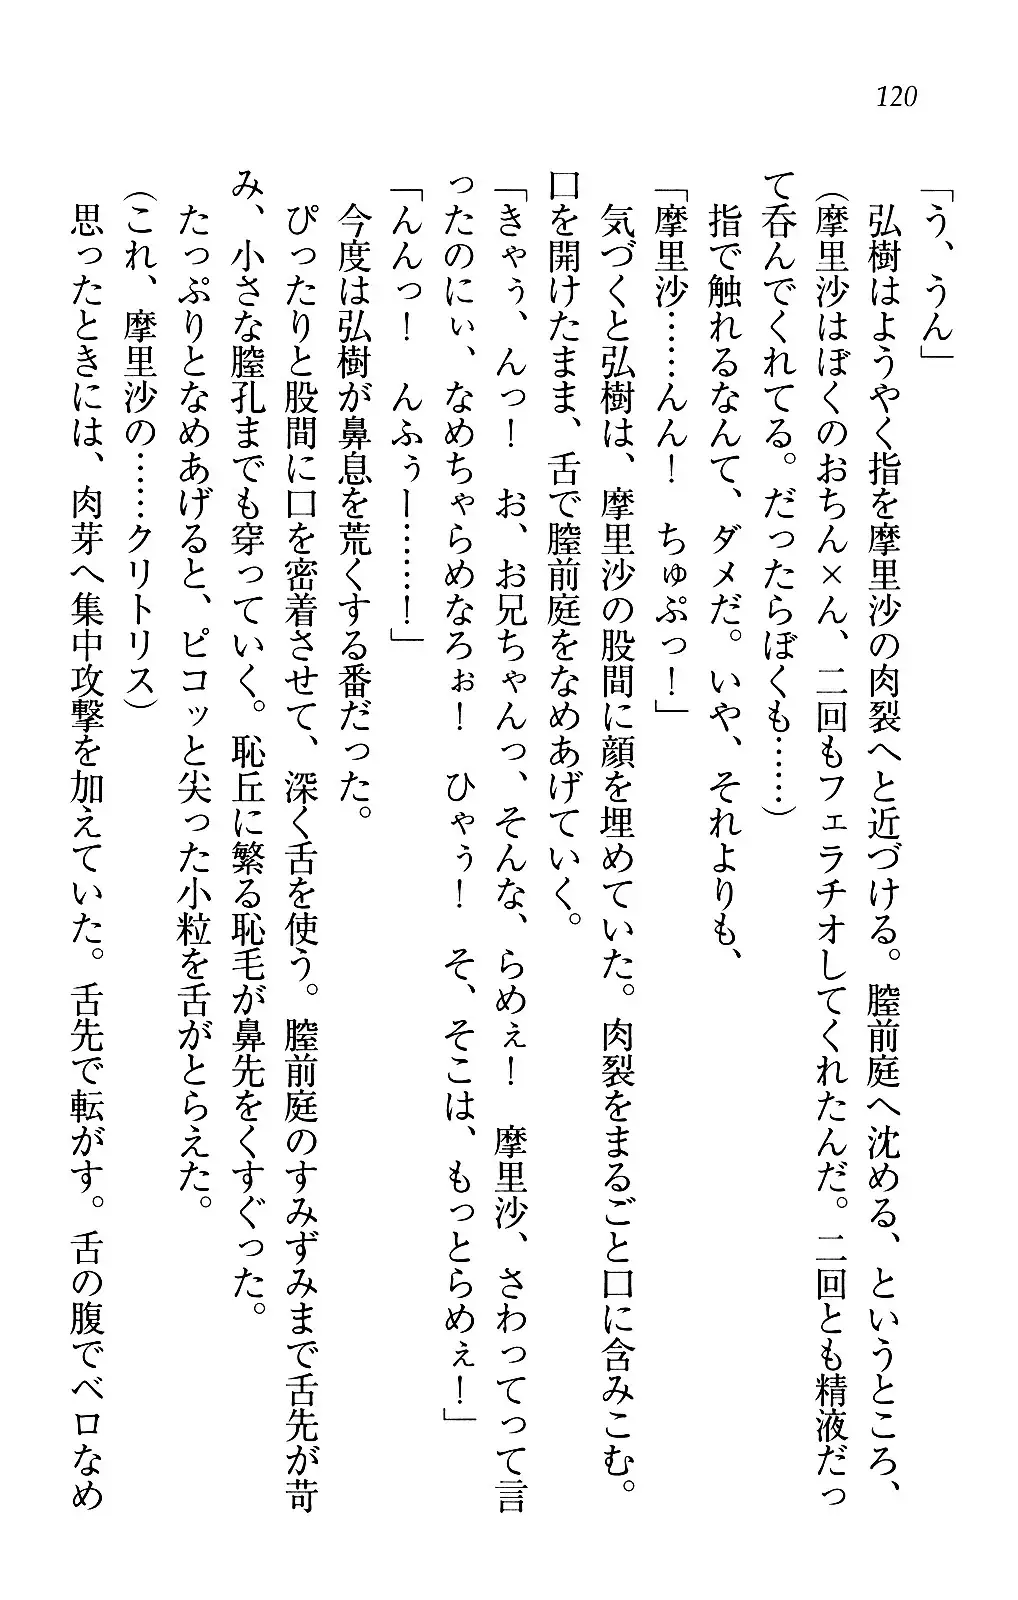 120
「う、うん」
弘樹はようやく指を摩里沙の肉裂へと近づける。膣前庭へ沈める、というところ、
（摩里沙はぼくのおちん×ん、二回もフェラチオしてくれたんだ。二回とも精液だっ
て呑んでくれてる。だったらぼくも……）
指で触れるなんて、ダメだ。いや、それよりも、
「摩里沙……んん！　ちゅぷっ！」
気づくと弘樹は、摩里沙の股間に顔を埋めていた。肉裂をまるごと口に含みこむ。
口を開けたまま、舌で膣前庭をなめあげていく。
「きゃぅ、んっ！　お、お兄ちゃんっ、そんな、らめぇ！　摩里沙、さわってって言
ったのにぃ、なめちゃらめなろぉ！　ひゃぅ！　そ、そこは、もっとらめぇ！」
「んんっ！　んふぅー……！」
今度は弘樹が鼻息を荒くする番だった。
ぴったりと股間に口を密着させて、深く舌を使う。膣前庭のすみずみまで舌先が苛
み、小さな膣孔までも穿っていく。恥丘に繁る恥毛が鼻先をくすぐった。
たっぷりとなめあげると、ピコッと尖った小粒を舌がとらえた。
（これ、摩里沙の……クリトリス）
思ったときには、肉芽へ集中攻撃を加えていた。舌先で転がす。舌の腹でベロなめ